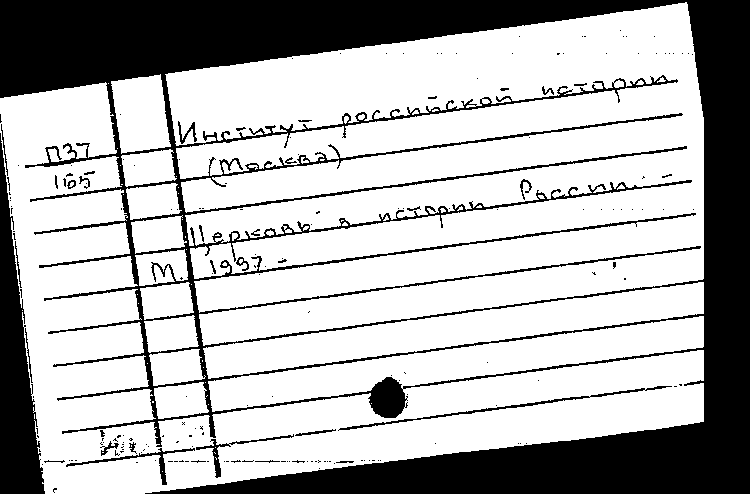 П37
165
Институт российской истории
(Москва)
Церковь в истории России. -
М. 1997 -